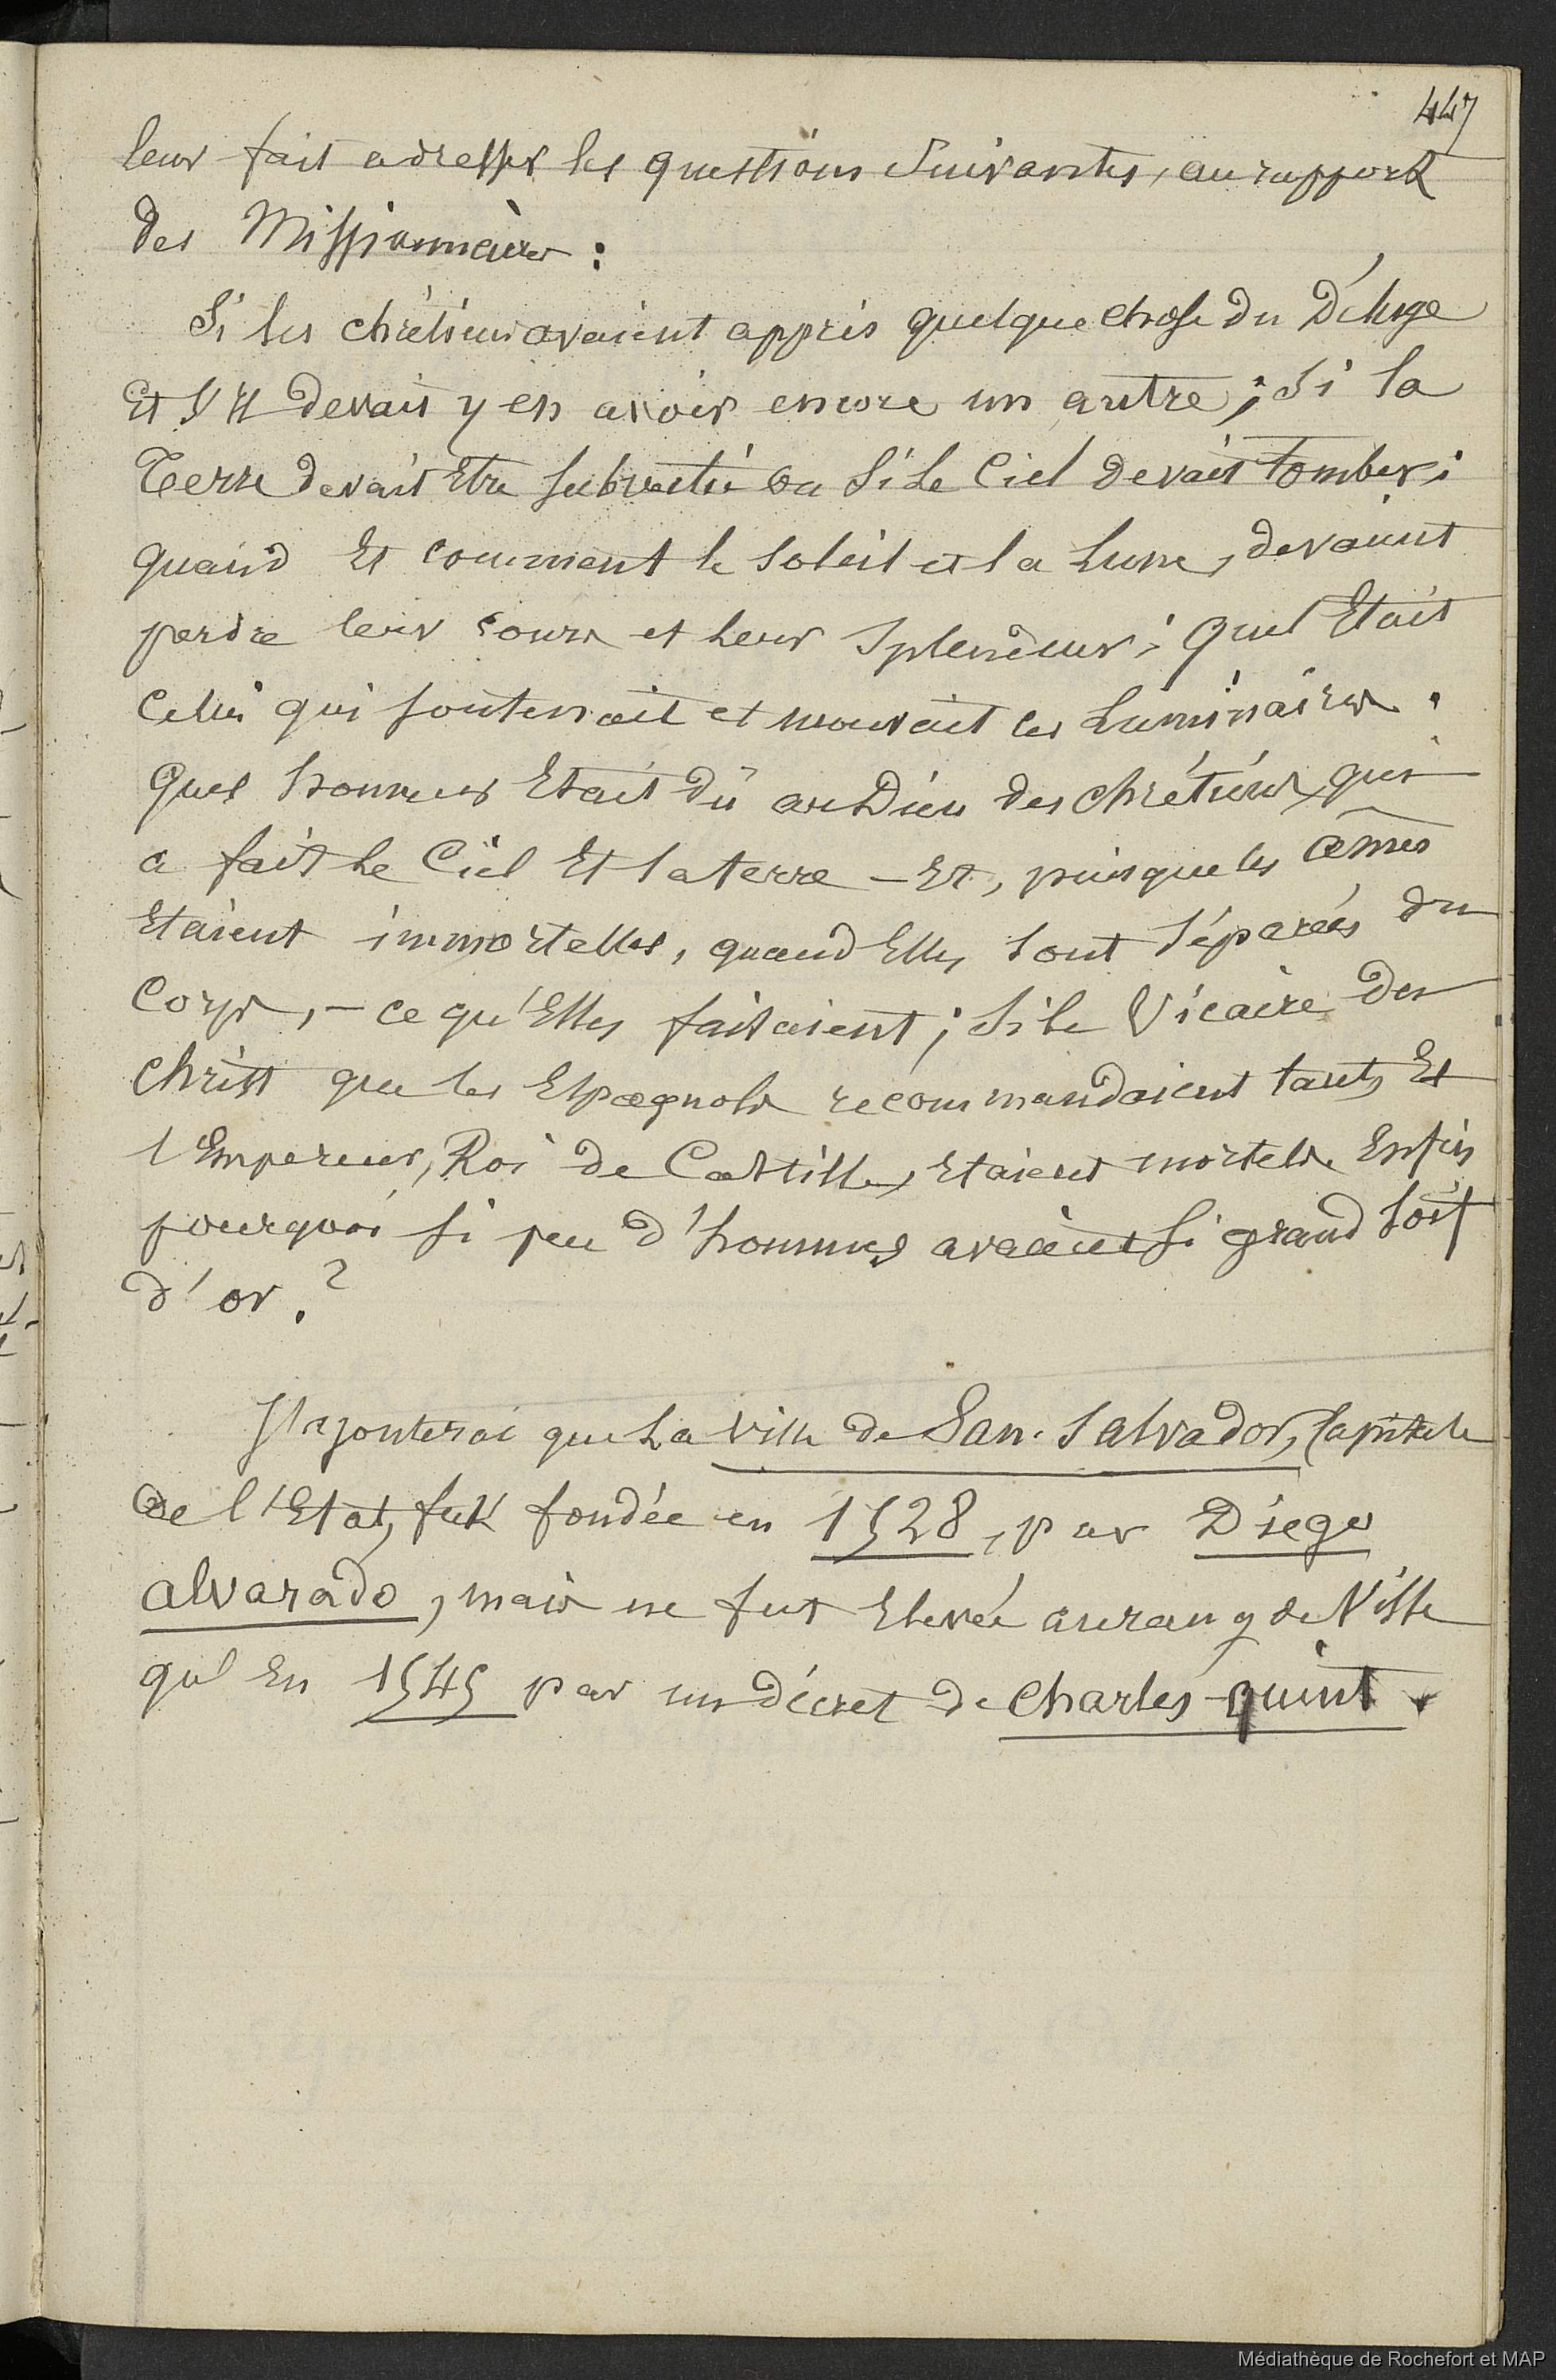 447
leur fait adresser les questions suivantes, au rapport
des Missionnaires :
Si les chrétiens avaient appris quelque chose du Déluge
Et s'il devait y en avoir encore un autre ; Si la
Terre devait Etre subvertie ou Si Le Ciel devait tomber ;
quand Et comment le Soleil et la Lune, devaient
perdre leur cours et Leur Splendeur ; Quel Etait
Celui qui soutenait et mouvait les Luminaires.
Quel honneur Etait dû au Dieu des chrétiens, qui
a fait Le Ciel Et la terre – Et, puisque les âmes
Etaient immortelles, quand Elles sont séparées du
Corps, – ce qu'Elles faisaient ; Si Le Vicaire du
Christ que les Espagnols recommandaient tant, Et
l'Empereur, Roi de Castille, Etaient mortels. Enfin
pourquoi si peu d'hommes avaient si grand soif
d'or. ?
J'ajouterai que La Ville de San. Salvador, Capitale
de l'Etat, fut fondée en 1528, par Diego
alvarado, mais ne fut Elevée au rang de Ville
qu'En 1545 par un décret de Charles-quint.
Médiathèque de Rochefort et MAP